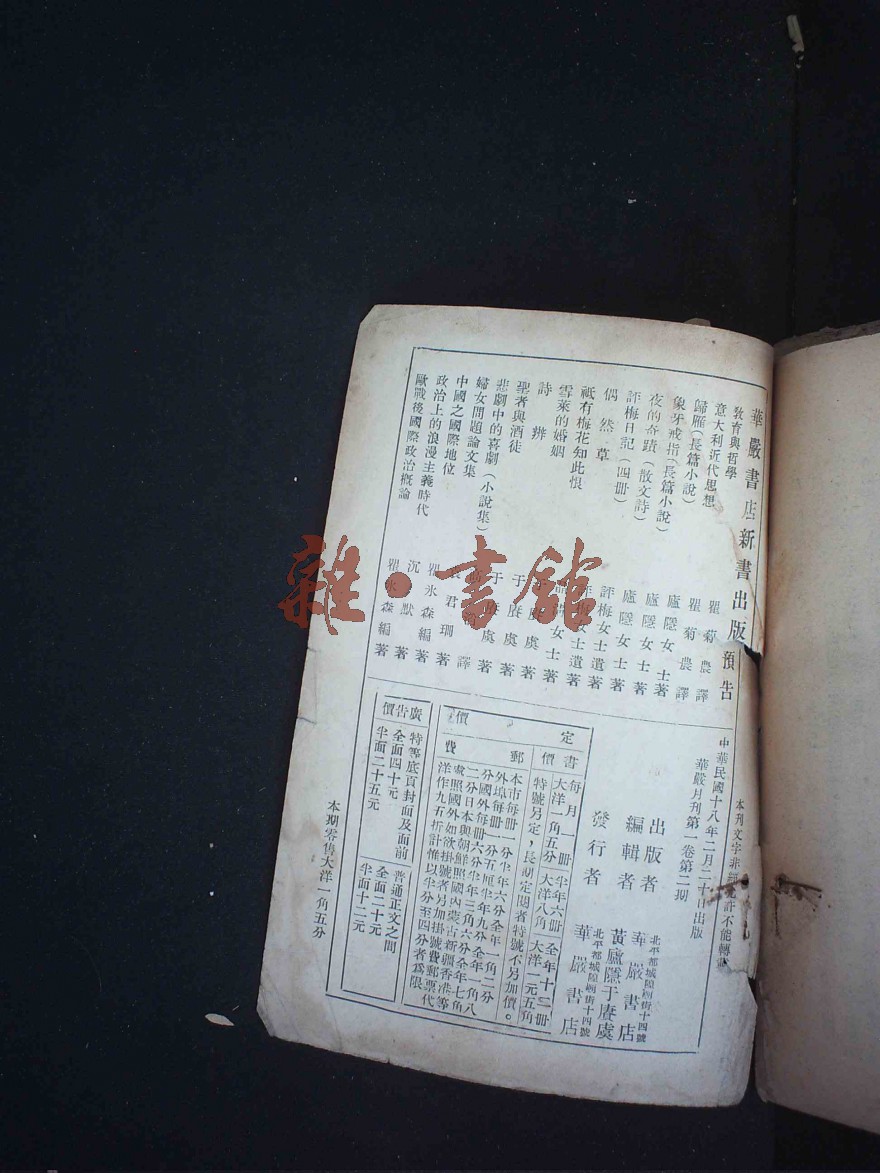 華嚴書店新書出版預告
教育與哲學 瞿菊農譯
意大利近代思想 瞿菊農譯
歸雁(長篇小說) 廬隱女士著
象牙戒指(長篇小說) 廬隱女士著
夜的奇蹟(散文詩) 廬隱女士著
評梅日記(四冊) 評梅女士遺著
偶然草 女士遺著
祗有梅花知此恨 女士著
雪萊的婚姻
詩辨 于賡虞
聖者與酒徒 于賡虞著
悲劇中的喜劇(小說集) 于賡虞著
婦女問題論文集 譯
中國之國際地位 袁君珊著
政治上的浪漫主義時代 瞿氷森編著
歐戰後國際政治概論 沉默著
瞿氷森編著
本刊文字非經允許不能轉
中華民國十八年二月二十日出版
華嚴月刊第一卷第二期
出版者 華嚴書店
北平都城隍廟街十四號
編輯者 黃廬隱于賡虞
發行者 華嚴書店
北平都城隍廟街十四號
定價
書價
每月一冊半年六冊全年十二冊
大洋一角五分大洋八角大洋一元五角
特號另定,長期定閱者特號不另加價。
郵費
本市每冊一分半年六分全年一角二分
外埠每冊一分五厘半年九分全年一角八
分國外每冊六分半年三角六分全年七角
二分日本與朝鮮照國內蒙古新疆香港等
處照國外如欲掛號者另加掛號費郵票代
洋作九五折計惟以半分至四分者爲限
廣告價
特等底頁封面及面前
全面四十元
半面二十五元
普通正文之間
全面二十元
半面十二元
本期零售大洋一角五分
雜·書館